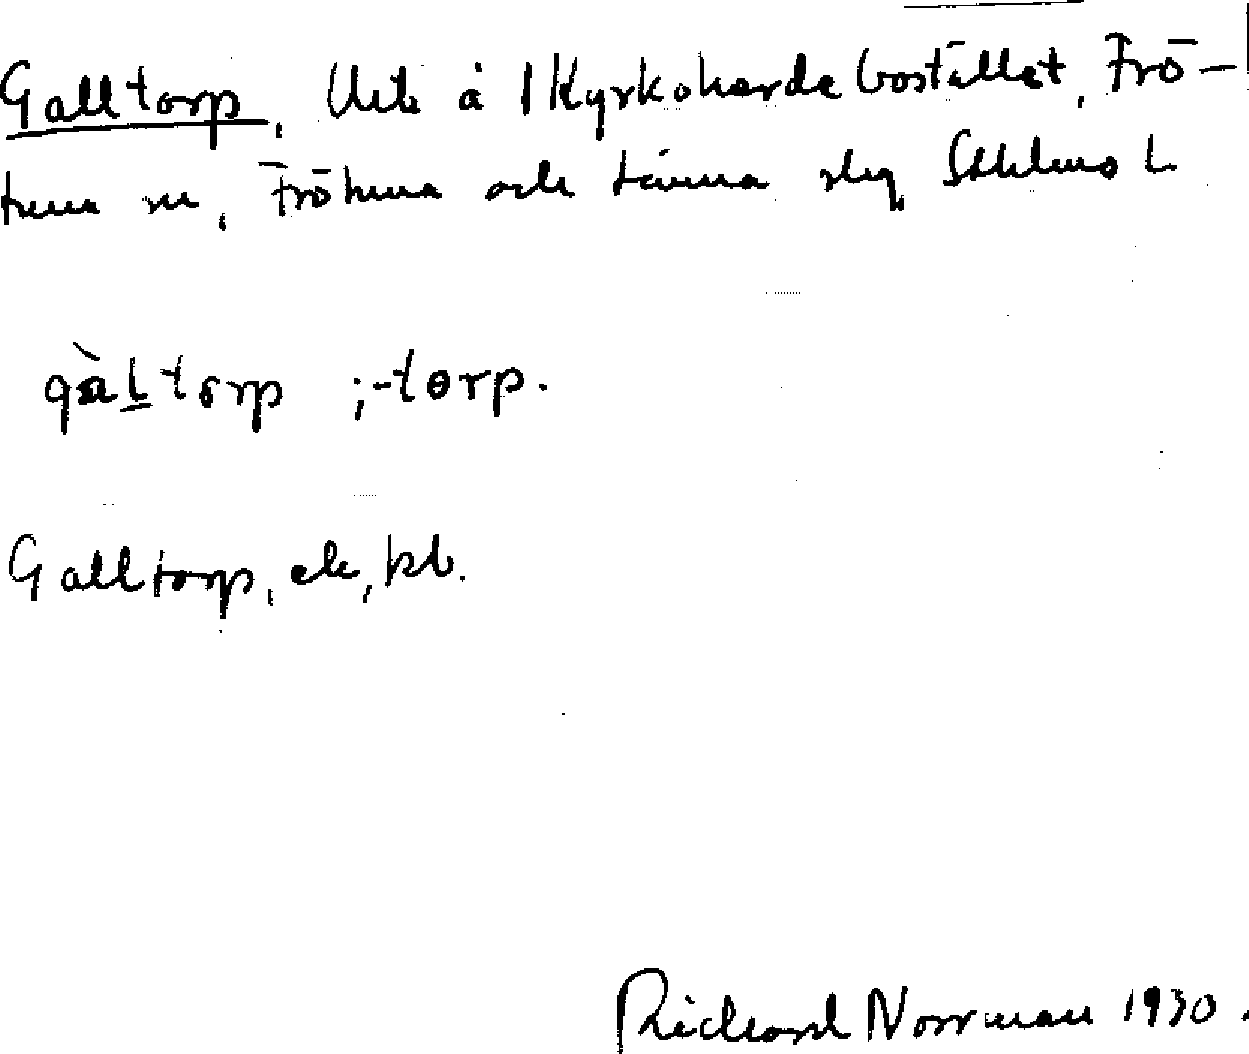 Galltorp, Utj å 1 Kyrkoherdebostället, Frö-
tuna sn, Frötuna och Länna slg Sthlms L
gàltorp ; -tɵrp.
Galltorp, ek, kb.
Richard Norrman 1930.